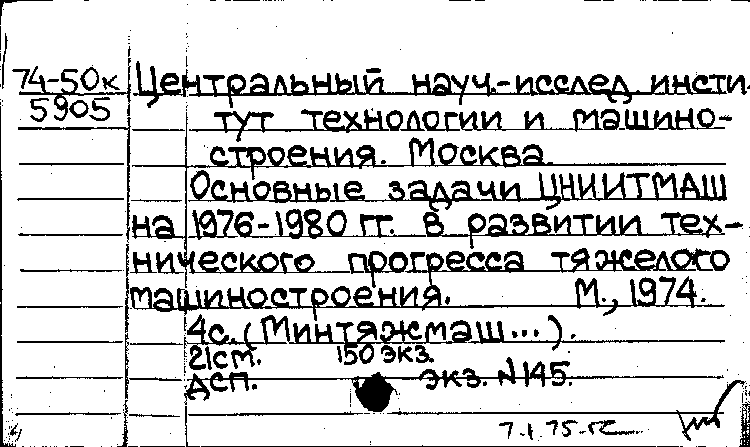 74-50к Центральный науч.-исслед. инсти-
5905 тут технологии и машино-
строения. Москва.
Основные задачи ЦНИИТМАШ
на 1976-1980 гг. в развитии тех-
нического прогресса тяжелого
машиностроения. М., 1974.
4с. (Минтяжмаш...).
21см. 150 экз.
ДСП. экз. №145.